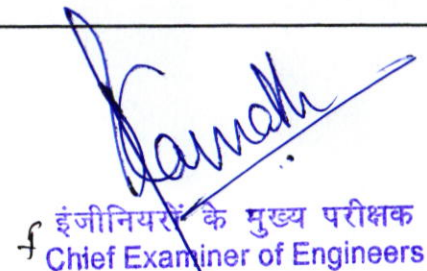 Kamath
f इंजीनियरों के मुख्य परीक्षक
Chief Examiner of Engineers